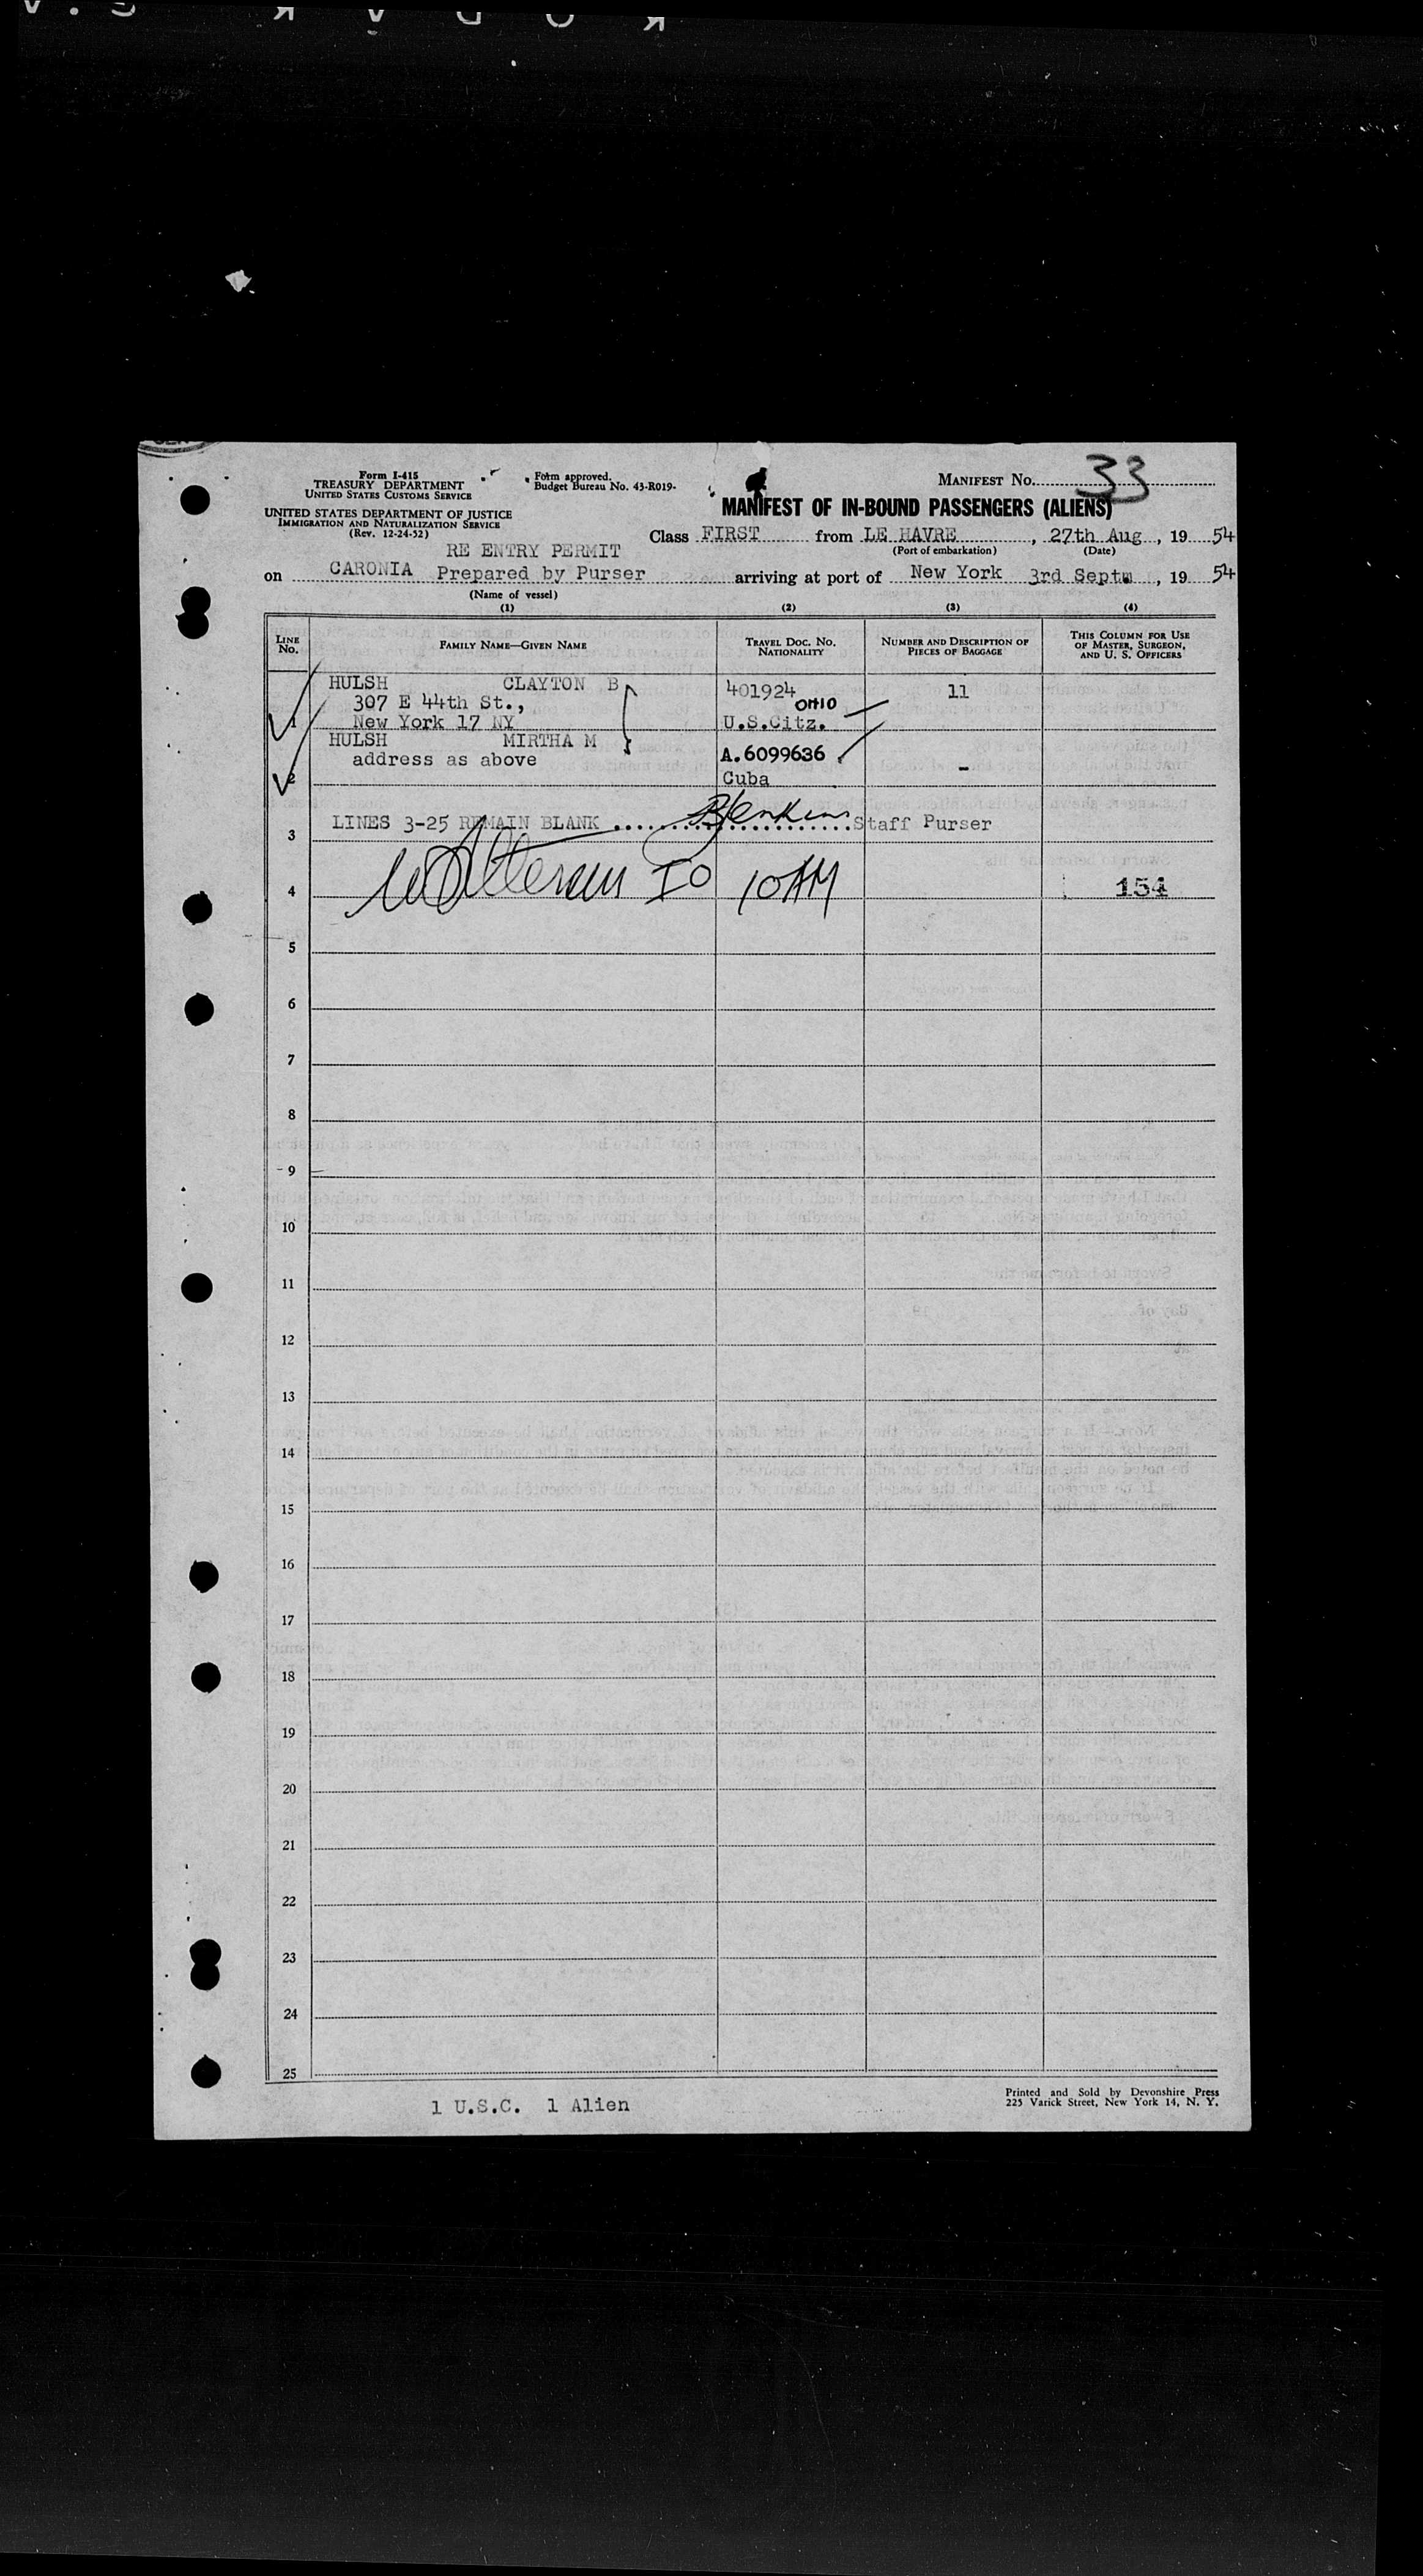 Form I-415
TREASURY DEPARTMENT
UNITED STATES CUSTOMS SERVICE
UNITED STATES DEPARTMENT OF JUSTICE
IMMIGRATION AND NATURALIZATION SERVICE
(Rev. 12-24-52)
Form approved.
Budget Bureau No. 43-R019-
MANIFEST No. 33
MANIFEST OF IN-BOUND PASSENGERS (ALIENS)
Class FIRST from LE HAVRE, 27th Aug, 19 54
(Port of embarkation) (Date)
RE ENTRY PERMIT
on CARONIA Prepared by Purser arriving at port of New York 3rd Septm, 19 54
(Name of vessel)
(1) (2) (3) (4)
LINE No. FAMILY NAME—GIVEN NAME TRAVEL DOC. No. NATIONALITY NUMBER AND DESCRIPTION OF PIECES OF BAGGAGE THIS COLUMN FOR USE OF MASTER, SURGEON, AND U. S. OFFICERS
HULSH CLAYTON B 401924 11
307 E 44th St., OHIO
1 New York 17 NY U.S.Citz.
HULSH MIRTHA M A.6099636
address as above -
2 Cuba
3 LINES 3-25 REMAIN BLANK Jenkins Staff Purser
4 IO 10AM 154
5
6
7
8
9
10
11
12
13
14
15
16
17
18
19
20
21
22
23
24
25
1 U.S.C. 1 Alien
Printed and Sold by Devonshire Press
225 Varick Street, New York 14, N. Y.